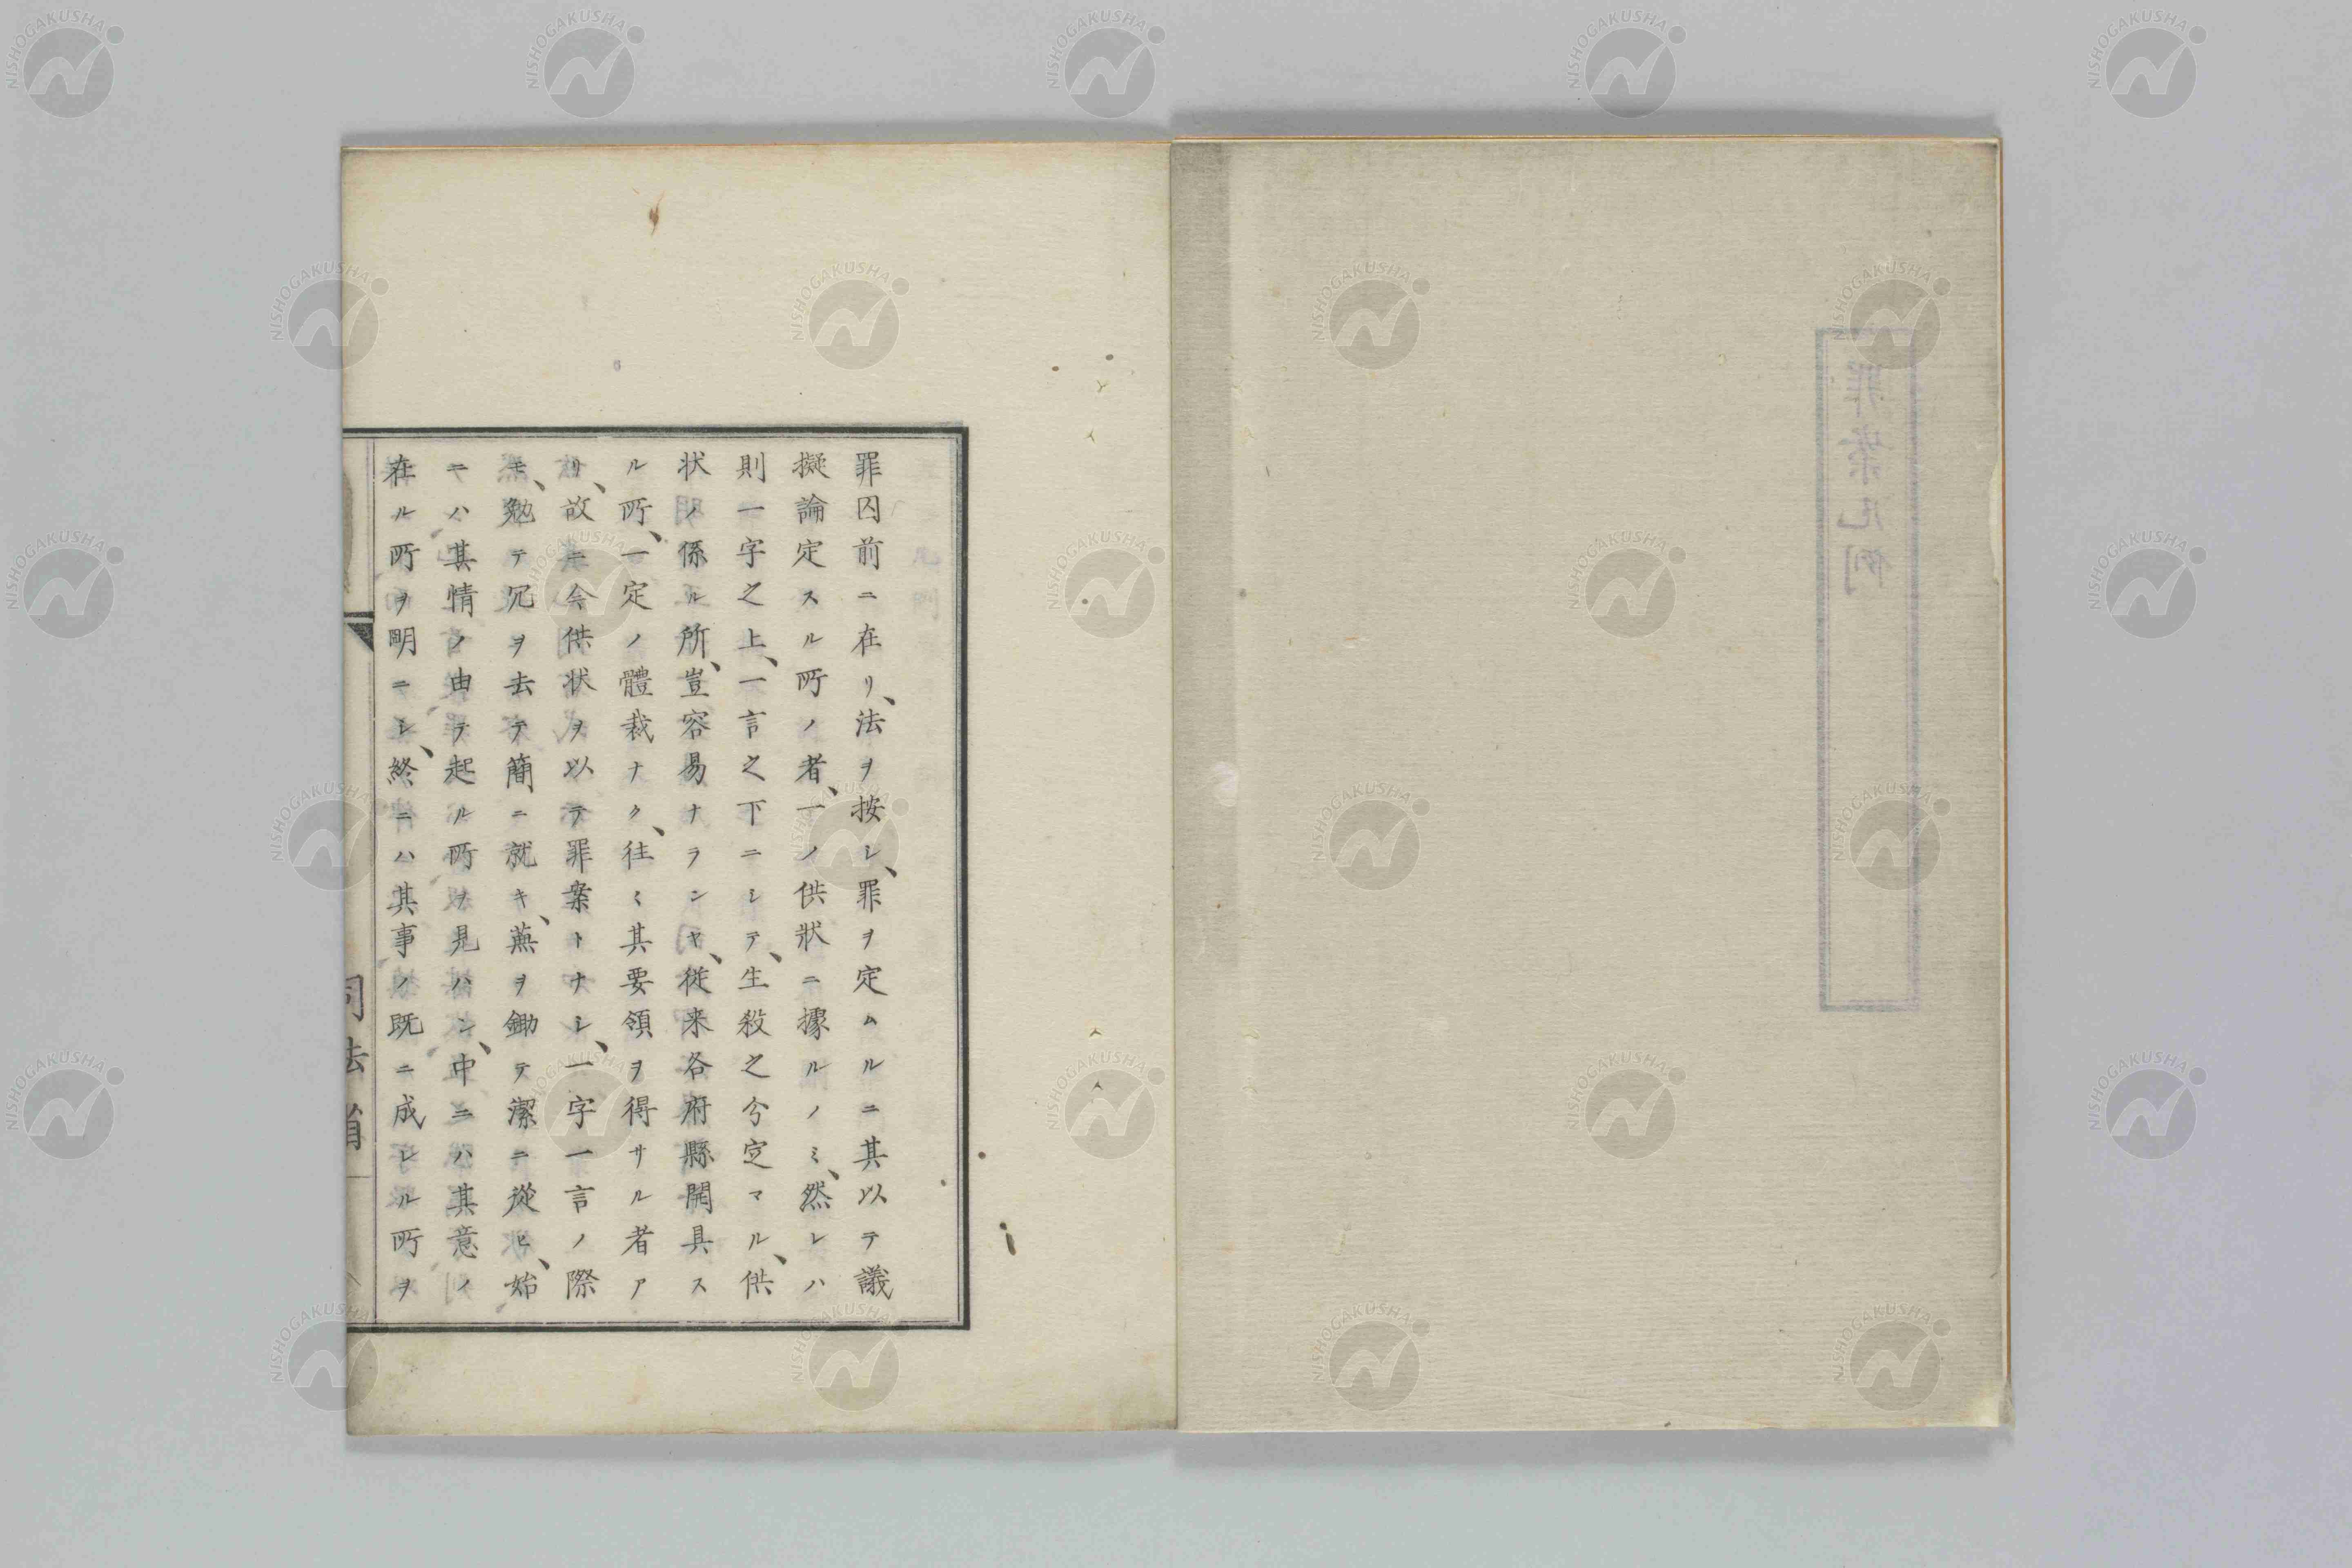 罪案凡例
罪囚前ニ在リ、法ヲ按シ、罪ヲ定ムルニ其以テ議
擬論定スル所ノ者、一ノ供狀ニ據ルノミ、然レハ
則一字之上、一言之下ニシテ、生殺之分定マル、供
状ノ係ル所、豈容易ナランヤ、従来各府縣開具ス
ル所、一定ノ體裁ナク、往々其要領ヲ得サル者ア
リ、故ニ今供状ヲ以テ罪案トナシ、一字一言ノ際
モ、勉テ冗ヲ去テ簡ニ就キ、蕪ヲ鋤テ潔ニ從ヒ、始
ニハ其情ノ由テ起ル所ヲ見ハシ、中ニハ其意ノ
在ル所ヲ明ニシ、終ニハ其事ノ既ニ成レル所ヲ
司法省
NISHOGAKUSHA